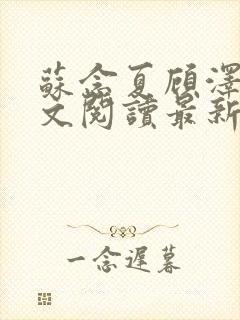 蘇念夏顾澤
文閱讀最新
一念遲暮